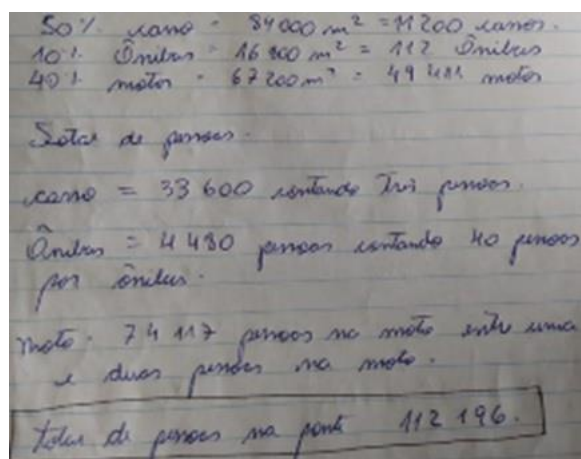 50% carro = 84000 m² = 11200 carros.
10% Ônibus = 16800 m² = 112 Ônibus
40% motos = 67200 m² = 49 411 motos
Total de pessoas.
carro = 33 600 contando três pessoas.
Ônibus = 4 480 pessoas contando 40 pessoas
por ônibus.
moto. 74 117 pessoas na moto entre uma
e duas pessoas na moto.
Total de pessoas na ponte 112 196.